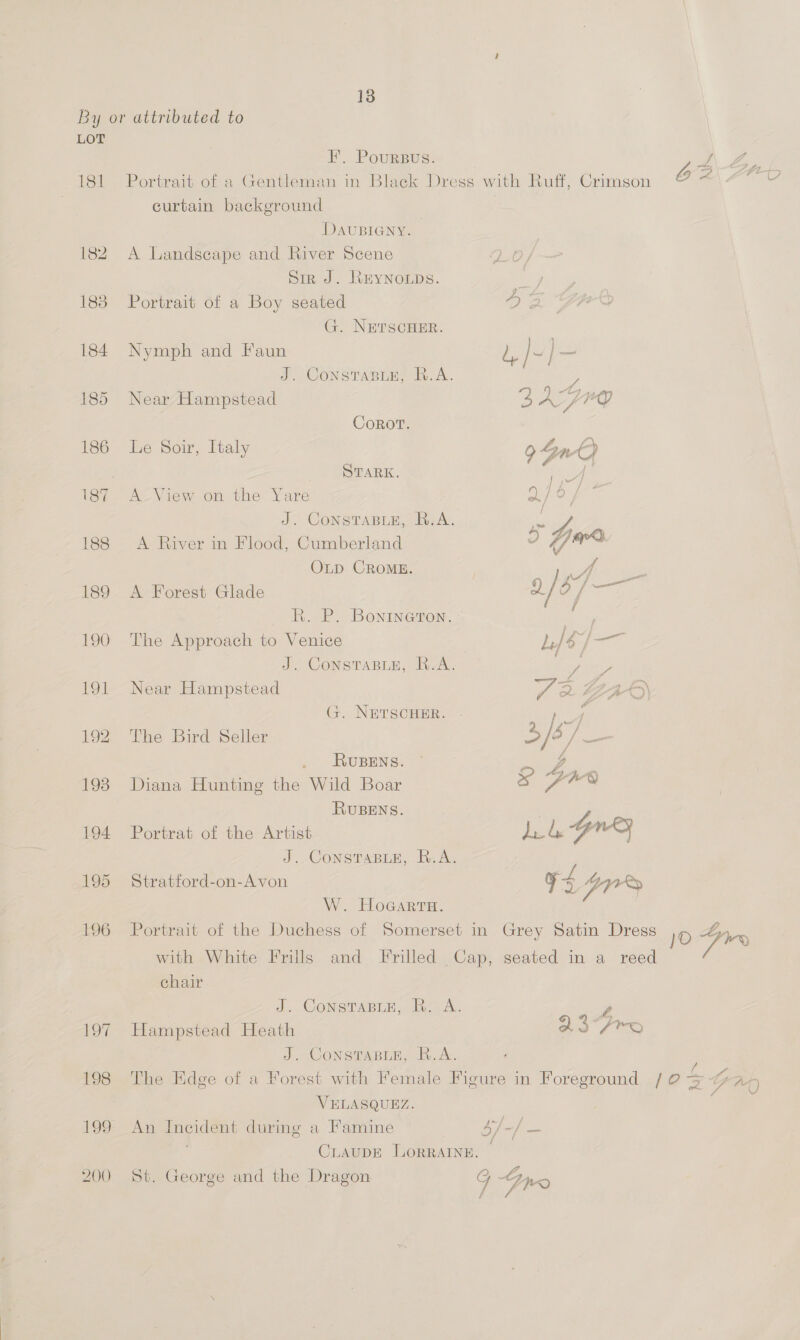 13
By or attributed to
LOT
F. POURBUS.
181 Portrait of a Gentleman in Black Dress with Ruff, Crimson 62 Gns
curtain background
DAUBIGNY.
182 A Landscape and River Scene 20/-
SIR J. REYNOLDS.
183 Portrait of a Boy seated 42 Gns
G. NETSCHER.
184 Nymph and Faun 4/-/-
J. CONSTABLE, R.A.
185 Near Hampstead 32 Gns
COROT.
186 Le Soir, Italy 9 Gns
STARK.
187 A View on the Yare 2/5/-
J. CONSTABLE, R.A.
188 A River in Flood, Cumberland 5 Gns
OLD CROME.
189 A Forest Glade 2/5/-
R. P. BONINGTON.
190 The Approach to Venice 4/5/-
J. CONSTABLE, R.A.
191 Near Hampstead 72 Gns
G. NETSCHER.
192 The Bird Seller 3/5/-
RUBENS.
193 Diana Hunting the Wild Boar 8 Gns
RUBENS.
194 Portrat of the Artist 44 Gns
J. CONSTABLE, R.A.
195 Stratford-on-Avon Gns
W. HOGARTH.
196 Portrait of the Duchess of Somerset in Grey Satin Dress 10 Gns
with White Frills and Frilled Cap, seated in a reed
chair
J. CONSTABLE, R. A.
197 Hampstead Heath 23 Gns
J. CONSTABLE, R.A.
198 The Edge of a Forest with Female Figure in Foreground 105 Gns
VELASQUEZ.
199 An Incident during a Famine 5/-/-
CLAUDE LORRAINE.
200 St. George and the Dragon 9 Gns